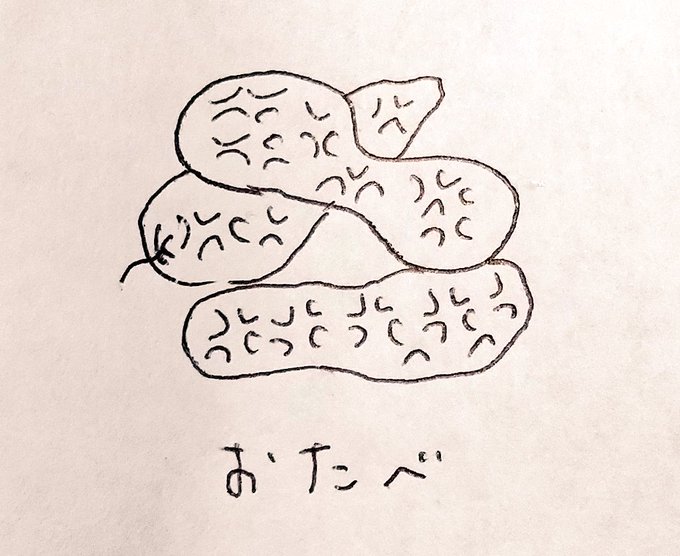 おたべ